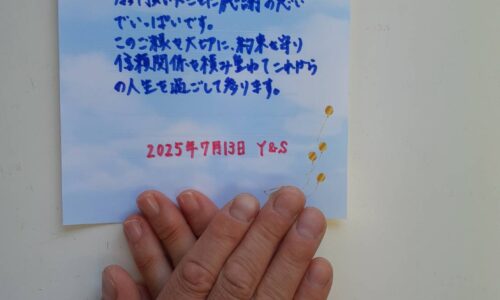 感謝の思い
でいっぱいです。
このご縁を大切に、約束を守り
信頼関係を積み重ねてこれから
の人生を過ごして参ります。
2025年7月13日 Y&S